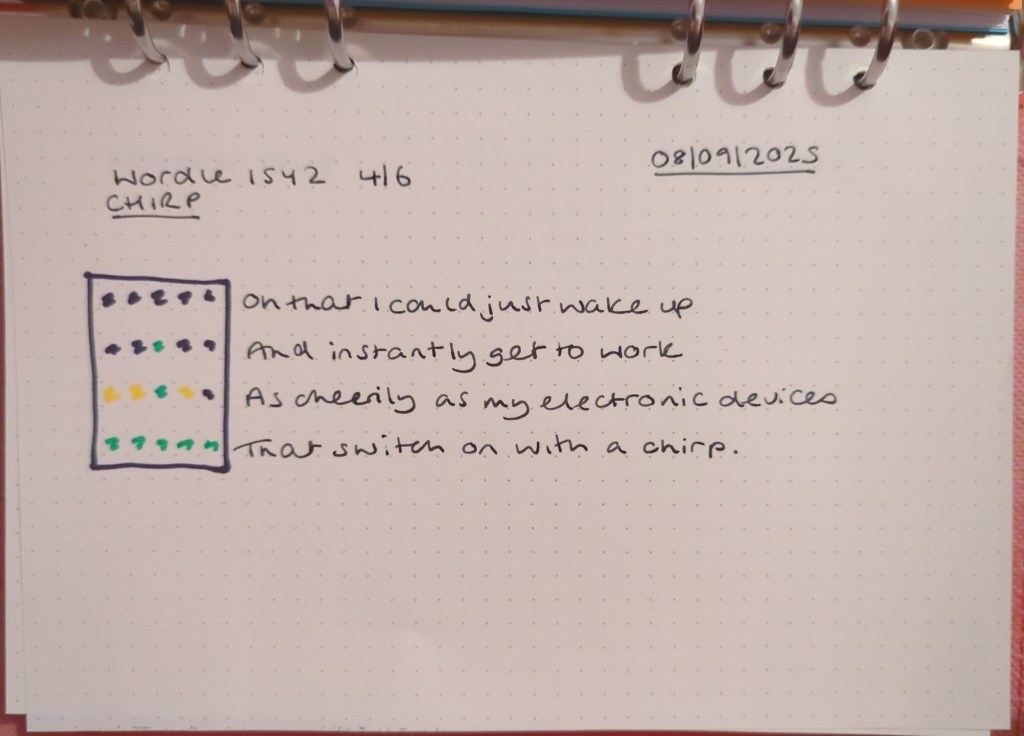 Wordle 1542 4/6
08/09/2025
CHIRP
Oh that I could just wake up
And instantly get to work
As cheerily as my electronic devices
That switch on with a chirp.